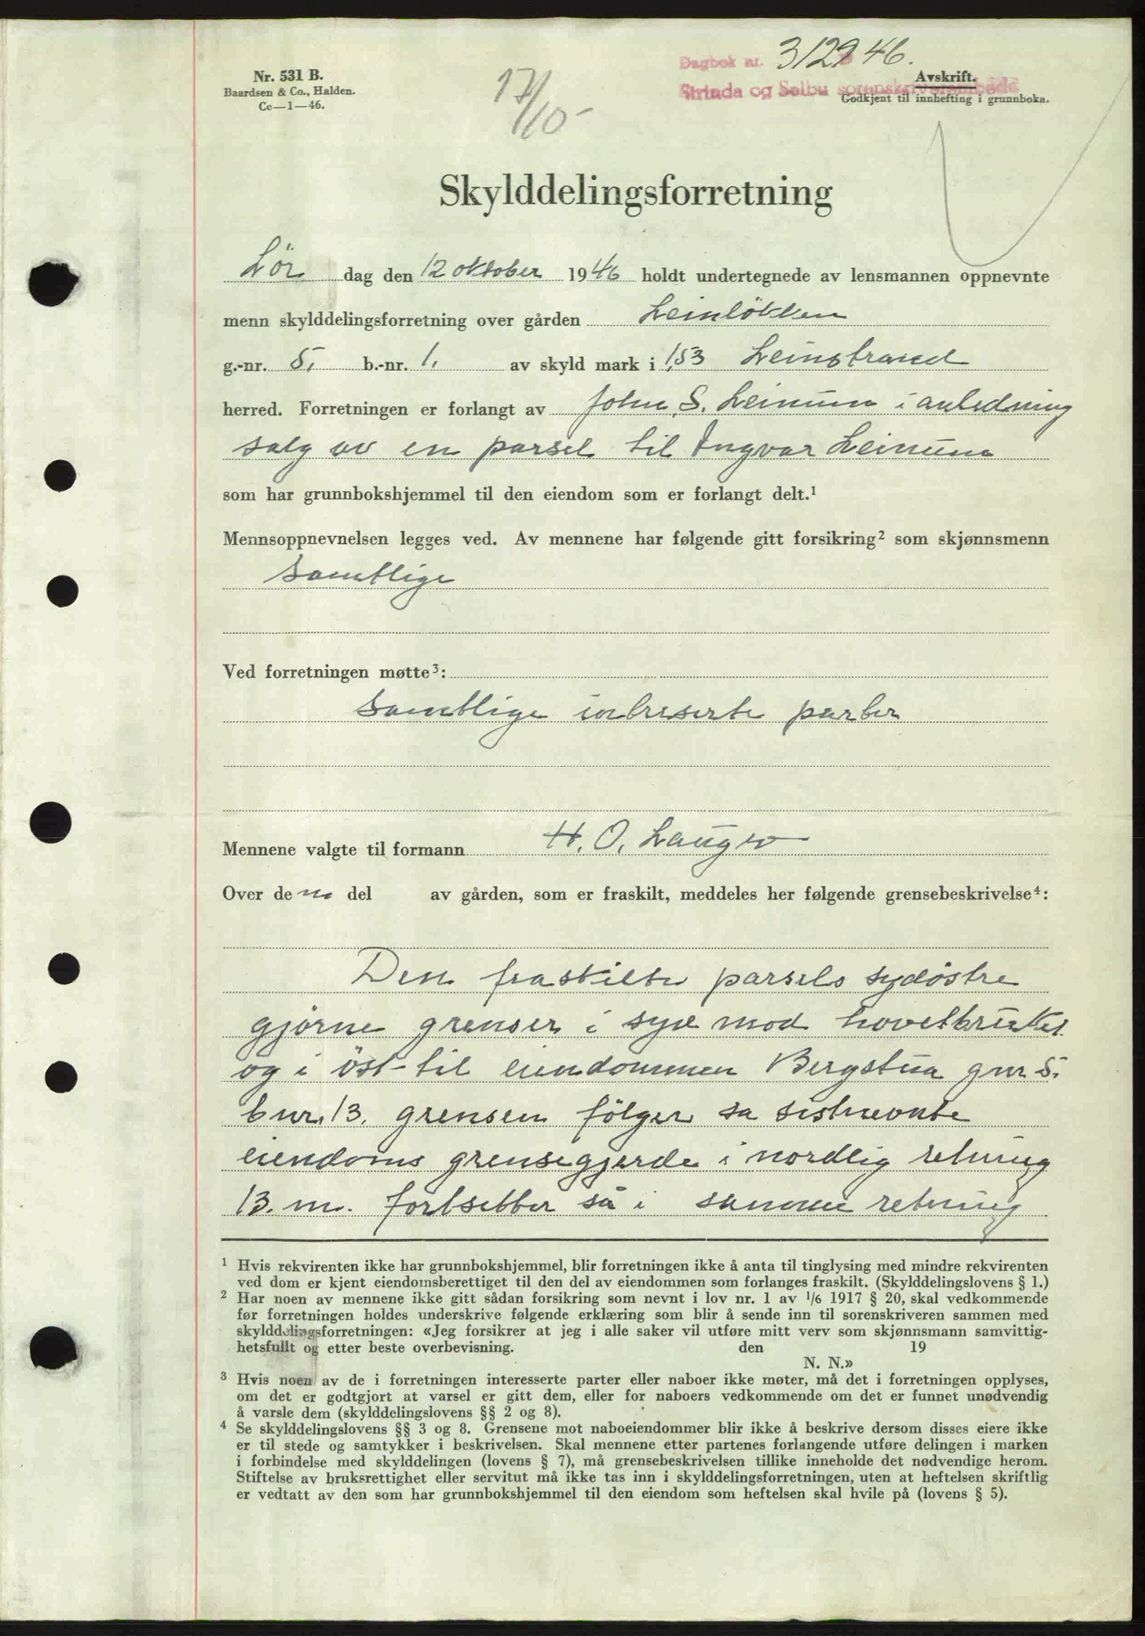 Nr. 531 B.
Baardsen & Co., Halden.
Cc—1—46.
17/10-
Dagbok nr. 3129 46.
Strinda og Selbu sorenskriverembede
Avskrift.
Godkjent til innhefting i grunnboka.
Skylddelingsforretning
Lör dag den 12 oktober 1946 holdt undertegnede av lensmannen oppnevnte
menn skylddelingsforretning over gården Leinlökken
g.-nr. 5, b.-nr. 1, av skyld mark i 1,53 Leinstrand
herred. Forretningen er forlangt av John S. Leinum i anledning
salg av en parsel til Ingvar Leinum
som har grunnbokshjemmel til den eiendom som er forlangt delt.¹
Mennsoppnevnelsen legges ved. Av mennene har følgende gitt forsikring² som skjønnsmenn
Samtlige
Ved forretningen møtte³:
Samtlige intreserte parter
Mennene valgte til formann H. O. Laugso
Over den del av gården, som er fraskilt, meddeles her følgende grensebeskrivelse⁴:
Den fraskilte parsels sydöstre
gjörne grenser i syd mod hovetbruket
og i öst til eiendommen Bergstua gnr 5.
bnr. 13. grensen fölger sa sistnevnte
eiendoms grensegjerde i nordlig retning
13. m. fortsetter så i samme retning
¹ Hvis rekvirenten ikke har grunnbokshjemmel, blir forretningen ikke å anta til tinglysing med mindre rekvirenten
ved dom er kjent eiendomsberettiget til den del av eiendommen som forlanges fraskilt. (Skylddelingslovens § 1.)
² Har noen av mennene ikke gitt sådan forsikring som nevnt i lov nr. 1 av 1/6 1917 § 20, skal vedkommende
før forretningen holdes underskrive følgende erklæring som blir å sende inn til sorenskriveren sammen med
skylddelingsforretningen: «Jeg forsikrer at jeg i alle saker vil utføre mitt verv som skjønnsmann samvittig-
hetsfullt og etter beste overbevisning. den 19
N. N.»
³ Hvis noen av de i forretningen interesserte parter eller naboer ikke møter, må det i forretningen opplyses,
om det er godtgjort at varsel er gitt dem, eller for naboers vedkommende om det er funnet unødvendig
å varsle dem (skylddelingslovens §§ 2 og 8).
⁴ Se skylddelingslovens §§ 3 og 8. Grensene mot naboeiendommer blir ikke å beskrive dersom disses eiere ikke
er til stede og samtykker i beskrivelsen. Skal mennene etter partenes forlangende utføre delingen i marken
i forbindelse med skylddelingen (lovens § 7), må grensebeskrivelsen tillike inneholde det nødvendige herom.
Stiftelse av bruksrettighet eller servitut må ikke tas inn i skylddelingsforretningen, uten at heftelsen skriftlig
er vedtatt av den som har grunnbokshjemmel til den eiendom som heftelsen skal hvile på (lovens § 5).